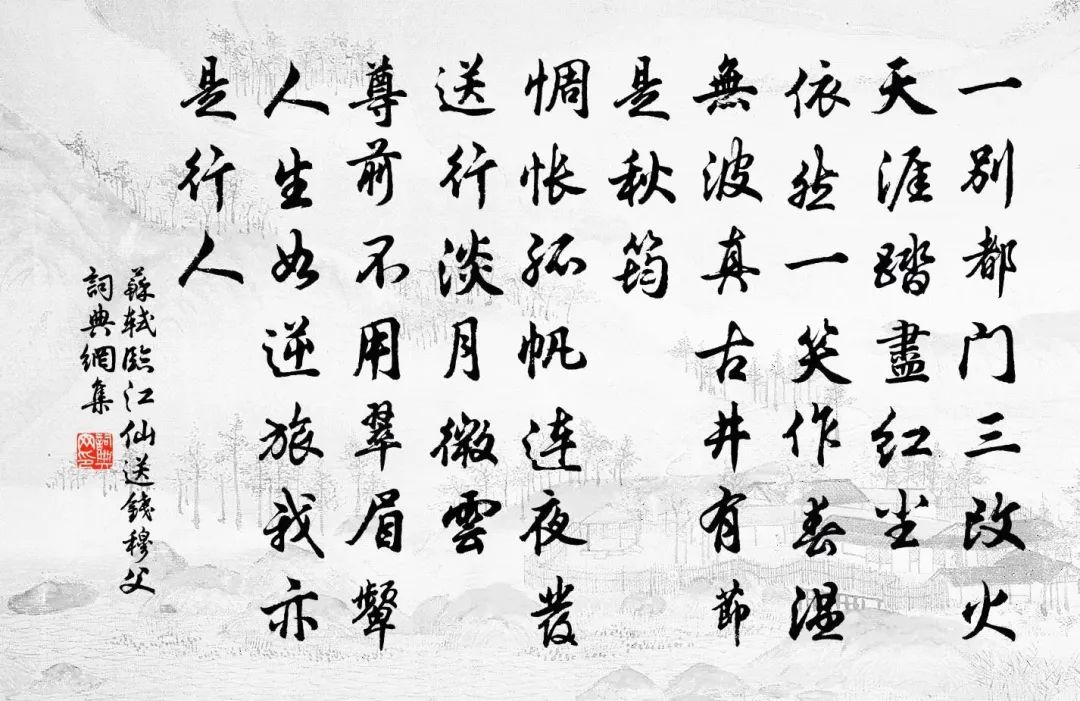 一别都门三改火
天涯踏盡红尘
依然一笑作春温
無波真古井有節
是秋筠
惆怅孤帆连夜發
送行淡月微雲
尊前不用翠眉颦
人生如逆旅我亦
是行人
蘇轼臨江仙送錢穆父
詞典網集